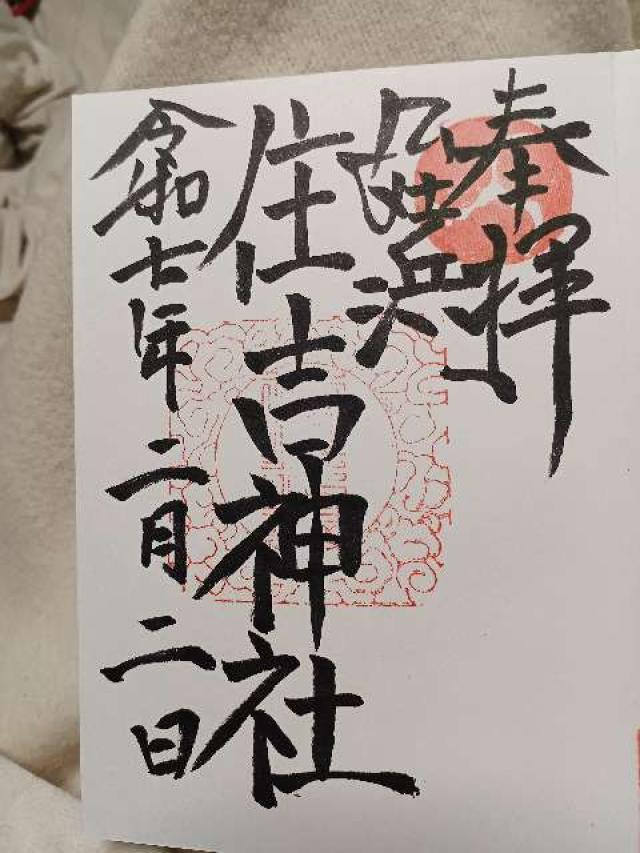 奉拝
姪浜
住吉神社
令和七年二月二日